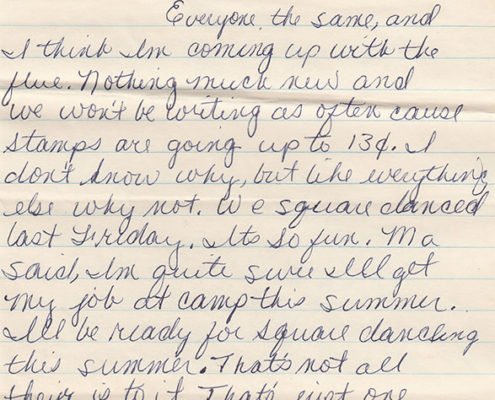 Everyone, the same, and
I think Im coming up with the
flue. Nothing much new and
we won't be writing as often cause
stamps are going up to 13¢. I
don't know why, but like everything
else why not. We square danced
last Friday. Its so fun. Ma
said, Im quite sure I'll get
my job at camp this summer.
I'll be ready for square dancing
this summer. That's not all
their is to it. That's just one